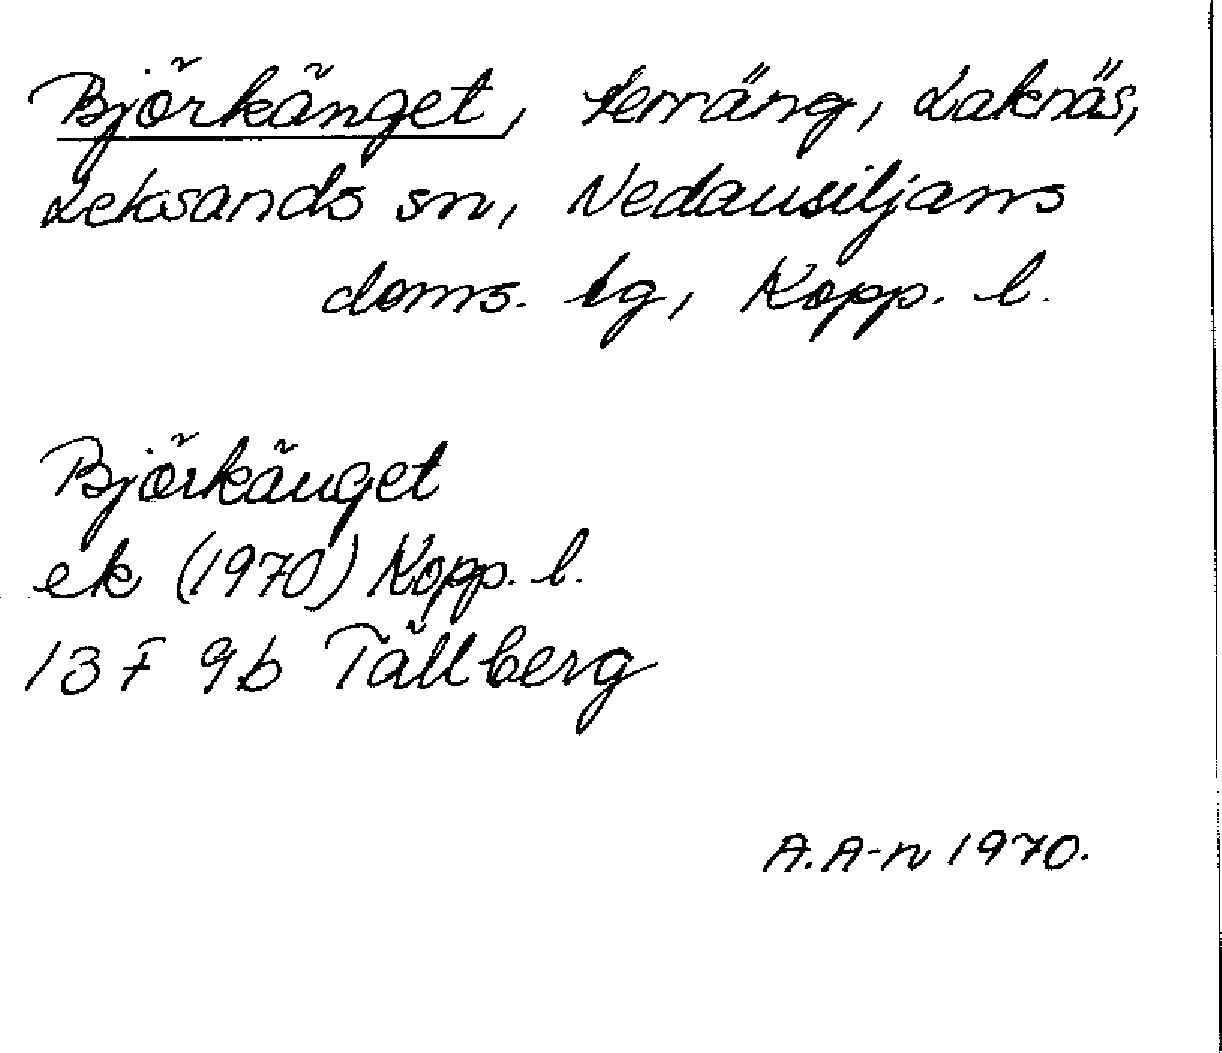 Björkänget, terräng, Laknäs,
Leksands sn, Nedansiljans
doms. tg, Kopp. l.
Björkänget
ek (1970) Kopp. l.
13 F 9b Tällberg
A. A-n 1970.